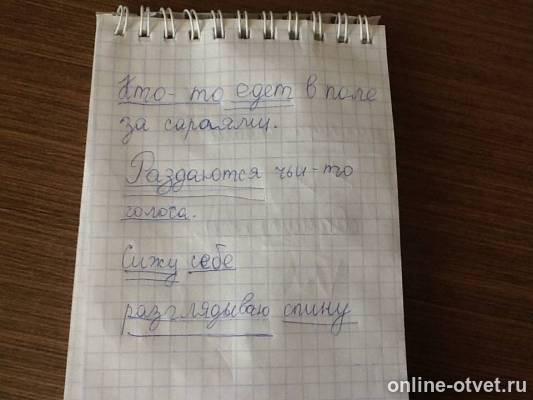 Кто-то едет в поле
за сараями.
Раздаются чьи-то
голоса.
Сижу себе
разглядываю спину
online-otvet.ru